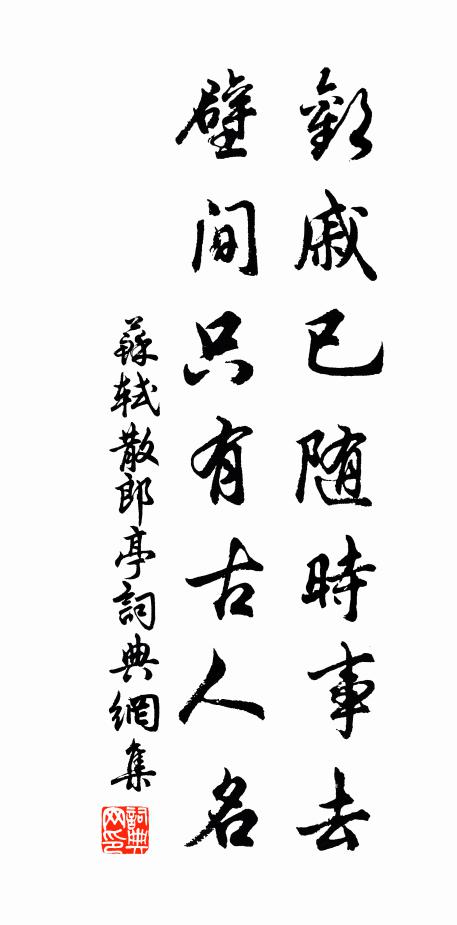 歡戚已随時事去
壁間只有古人名
蘇軾散郎亭詞典網集
詞典網印